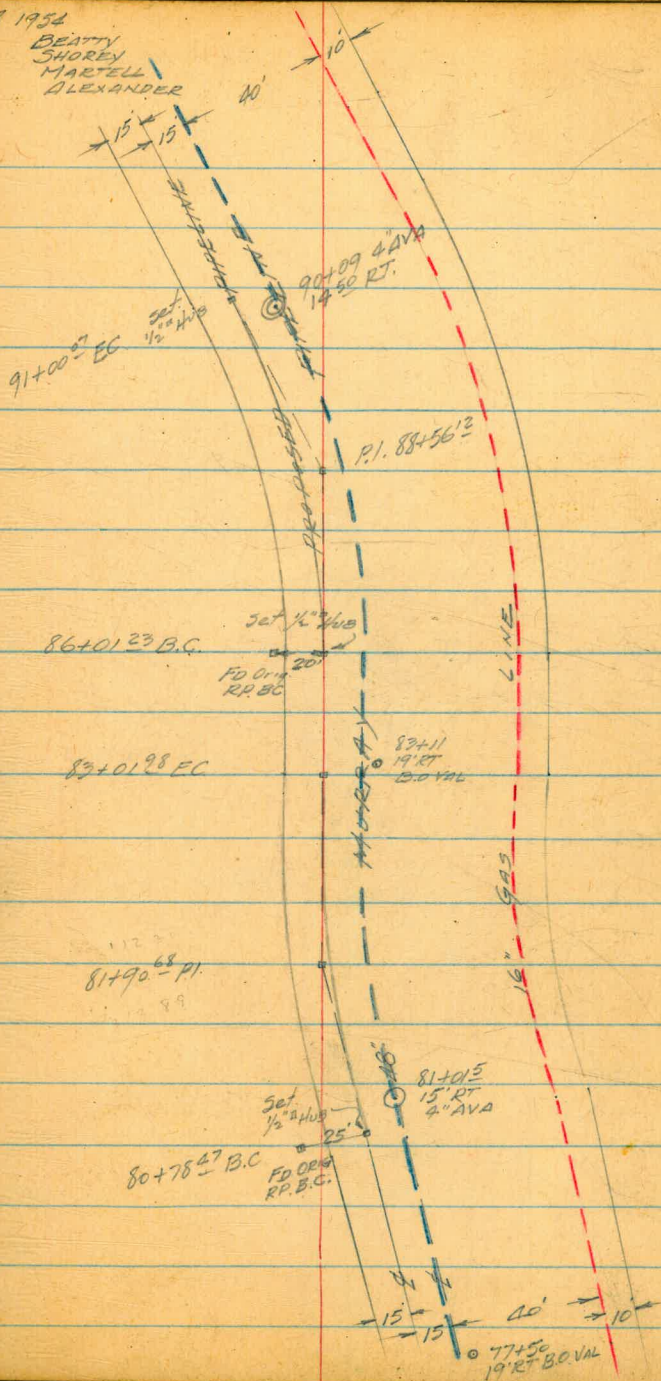 1954
BEATTY
SHOREY
MARTELL
ALEXANDER
10'
40'
15'
15'
PIPELINE
90+09 4" AVA
14 50 RT.
Set
1/2" HUB
91+00 07 EC
P.I. 88+56 12
PROPOSED
Set 1/2" HUB
86+01 23 B.C.
20'
FD Orig
RP. BC
LINE
83+11
19' RT
B.O VAL
83+01 98 EC
MURRAY
GAS
81+90 68 P.I.
16"
81+01 5
15' RT
4" AVA
Set
1/2" HUB
25'
80+78 47 B.C
FD ORIG
RP. B.C.
15'
15'
40'
10'
77+50
19' RT B.O. VAL